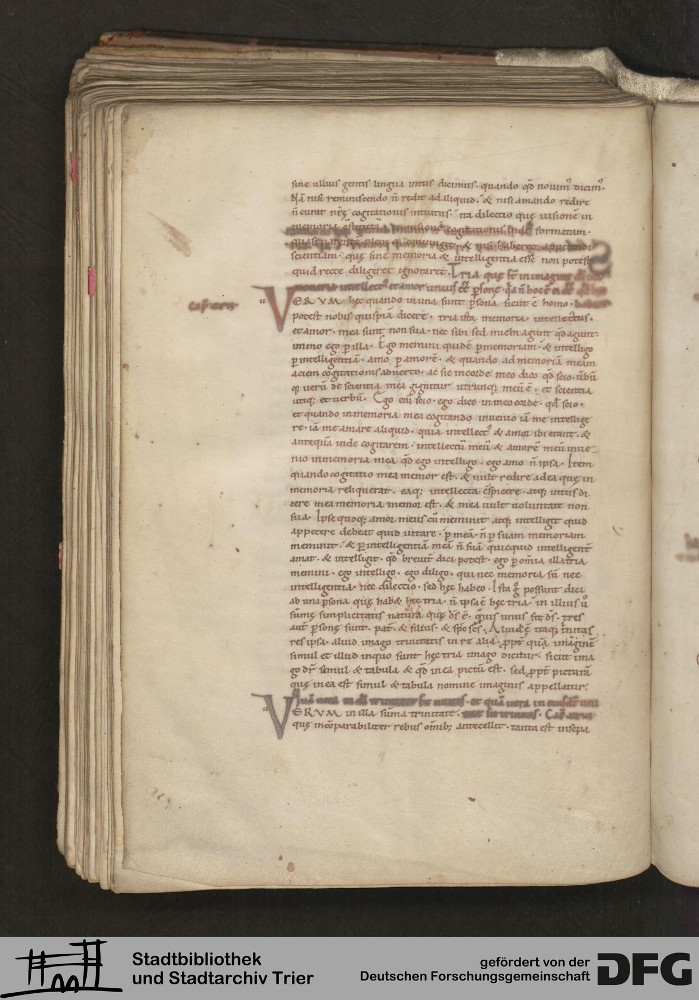 sine ullius gentis lingua intus dicimus. quando qd nouim' dicim'.
nisi reminiscendo n redit ad aliquid. & nisi amando redire
n curat nrę cogitationis intuitus. ita dilectio quę uisionē in
memoria cogitationis formatam.
scientiam. quę sine memoria & intelligentia esse non potest
quid recte diligeret ignoraret. Tria quę st in imagine
memoria intellect' et amor unius
cap xxii.
VERUM hęc quando in una sunt psona sicut ē homo.
potest nobis quispiā dicere. tria ista memoria. intellectus.
et amor. mea sunt non sua. nec sibi sed michi agunt qd agunt.
immo ego p illa. Ego memini quidē p memoriam. & intelligo
p intelligentiā. amo p amorē. & quando ad memoriā meam
aciem cogitationis aduerto. ac sic in corde meo dico qd scio. ūbūq
uerū de scientia mea gignitur utrunq; meū ē. et scientia
utiq; et uerbū. Ego enī scio. ego dico in meo corde. qd scio.
et quando in memoria mea cogitando inuenio iā me intellige
re. iā me amare aliquid. quia intellect' & amor ibi erant. &
antequā inde cogitarem. intellectū meū & amorē meū inue
nio in memoria mea. qd ego intelligo. ego amo n ipsa. Item
quando cogitatio mea memor est. & uult redire ad ea quę in
memoria reliquerat. eaq; intellecta cspicere. atq; intus di
cere mea memoria memor est. & mea uult uoluntate non
sua. Ipse quoq; amor meus cū meminit atq; intelligit quid
appetere debeat quid uitare. p mea. n p suam memoriam
meminit. & p intelligentiā meā n suā quicquid intelligent
amat. & intelligit. qd breuit dici potest. ego p omīa illa tria
memini. ego intelligo. ego diligo. qui nec memoria sū. nec
intelligentia. nec dilectio. sed hęc habeo. Ista g possunt dici
ab una psona quę habet hęc tria. n ipsa ē hęc tria. in illius u
sūmę simplicitatis natura quę ds ē. quis unus sit ds. tres
aut psonę sunt. pat. & filius. & sps scs. Aliud ē itaq; trinitas
res ipsa. aliud imago trinitatis in re alia. ppt quā imaginē
simul et illud in quo sunt hęc tria imago dicitur. sicut ima
go dr simul & tabula & qd in ea pictū est. sed ppt picturā
quę in ea est simul & tabula nomine imaginis appellatur.
VERUM in illa sūma trinitate.
quę incōparabiliter rebus omib; antecellit. tanta est insepa
Stadtbibliothek
und Stadtarchiv Trier
gefördert von der
Deutschen Forschungsgemeinschaft
DFG